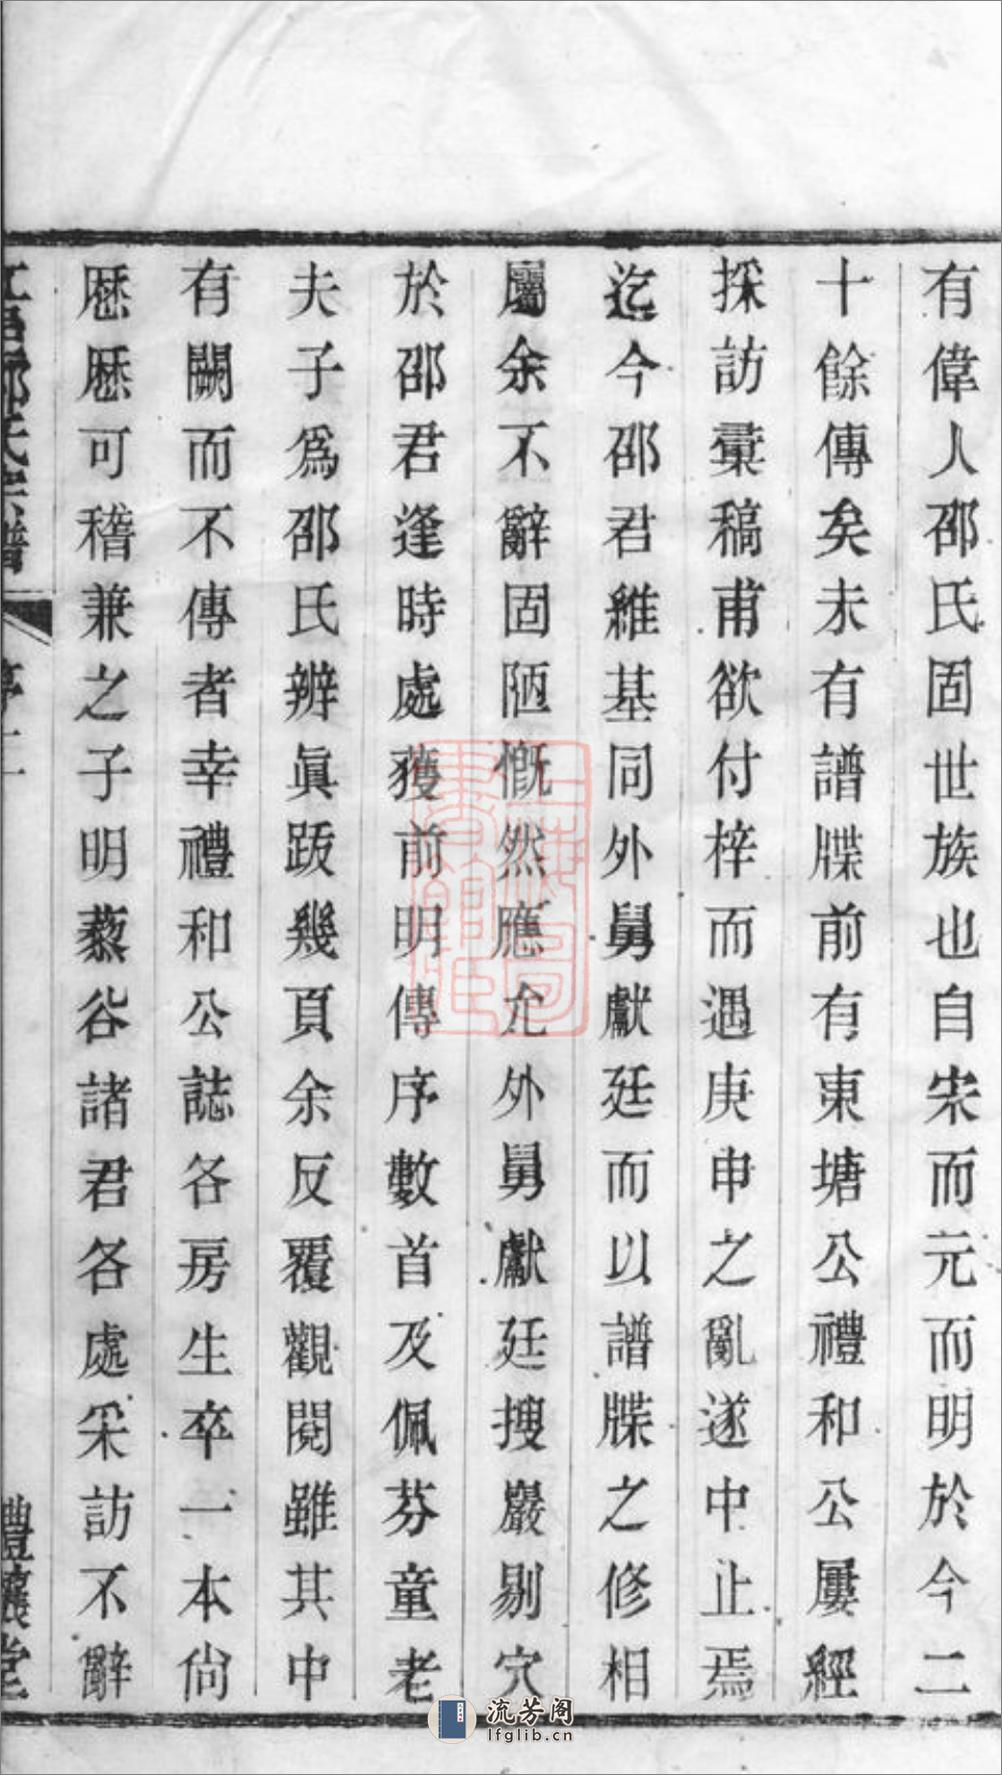 有偉人邵氏固世族也自宋而元而明於今二
十餘傳矣未有譜牒前有東塘公禮和公屢經
採訪彚稿甫欲付梓而遇庚申之亂遂中止焉
迄今邵君維基同外舅獻廷而以譜牒之修相
屬余不辭固陋慨然應允外舅獻廷搜巖剔穴
於邵君逢時處獲前明傳序數首及佩芬童老
夫子爲邵氏辨眞跋幾頁余反覆觀閱雖其中
有闕而不傳者幸禮和公誌各房生卒一本尙
厯厯可稽兼之子明藜谷諸君各處采訪不辭
邵氏宗譜
序二
禮讓堂
上海圖書館藏
流芳阁
lfglib.cn